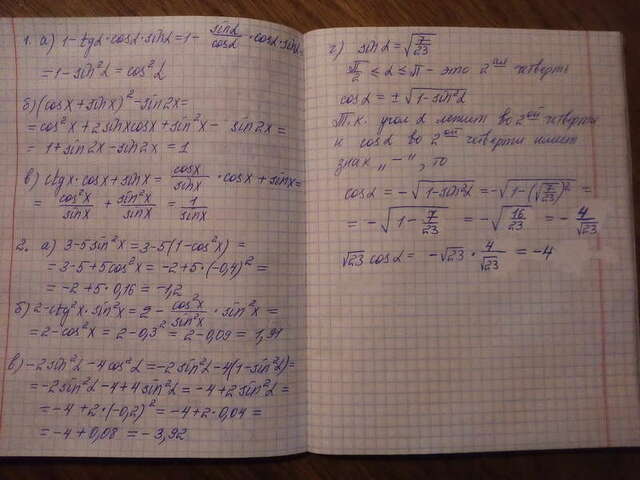 1. а) 1 - tgα · cosα · sinα = 1 - sinα/cosα · cosα · sinα =
= 1 - sin²α = cos²α
б) (cosx + sinx)² - sin2x =
= cos²x + 2sinxcosx + sin²x - sin2x =
= 1 + sin2x - sin2x = 1
в) ctgx · cosx + sinx = cosx/sinx · cosx + sinx =
= cos²x/sinx + sin²x/sinx = 1/sinx
2. а) 3 - 5sin²x = 3 - 5(1 - cos²x) =
= 3 - 5 + 5cos²x = -2 + 5 · (-0,4)² =
= -2 + 5 · 0,16 = -1,2
б) 2 - ctg²x · sin²x = 2 - cos²x/sin²x · sin²x =
= 2 - cos²x = 2 - 0,3² = 2 - 0,09 = 1,91
в) -2sin²α - 4cos²α = -2sin²α - 4(1 - sin²α) =
= -2sin²α - 4 + 4sin²α = -4 + 2sin²α =
= -4 + 2 · (-0,2)² = -4 + 2 · 0,04 =
= -4 + 0,08 = -3,92
г) sinα = √(7/23)
π/2 ≤ α ≤ π - это 2ая четверть
cosα = ±√(1 - sin²α)
Т.к. угол α лежит во 2ой четверти
и cosα во 2ой четверти имеет
знак „-", то
cosα = -√(1 - sin²α) = -√(1 - (√(7/23))²) =
= -√(1 - 7/23) = -√(16/23) = -4/√23
√23 cosα = -√23 · 4/√23 = -4